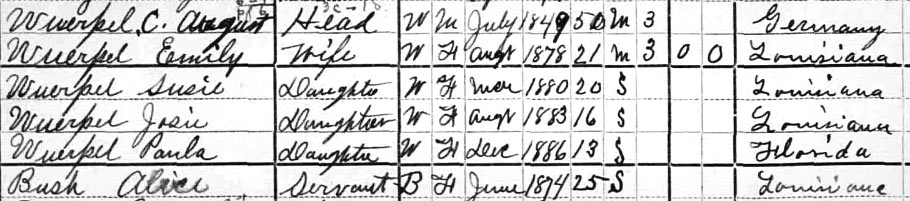 Wuerpel, C. August Head W M July 1849 50 M 3 Germany
Wuerpel Emily Wife W F Augt 1878 21 M 3 0 0 Louisiana
Wuerpel Susie Daughter W F Mar 1880 20 S Louisiana
Wuerpel Josie Daughter W F Augt 1883 16 S Louisiana
Wuerpel Paula Daughter W F Dec 1886 13 S Florida
Bush Alice Servant B F June 1874 25 S Louisiana